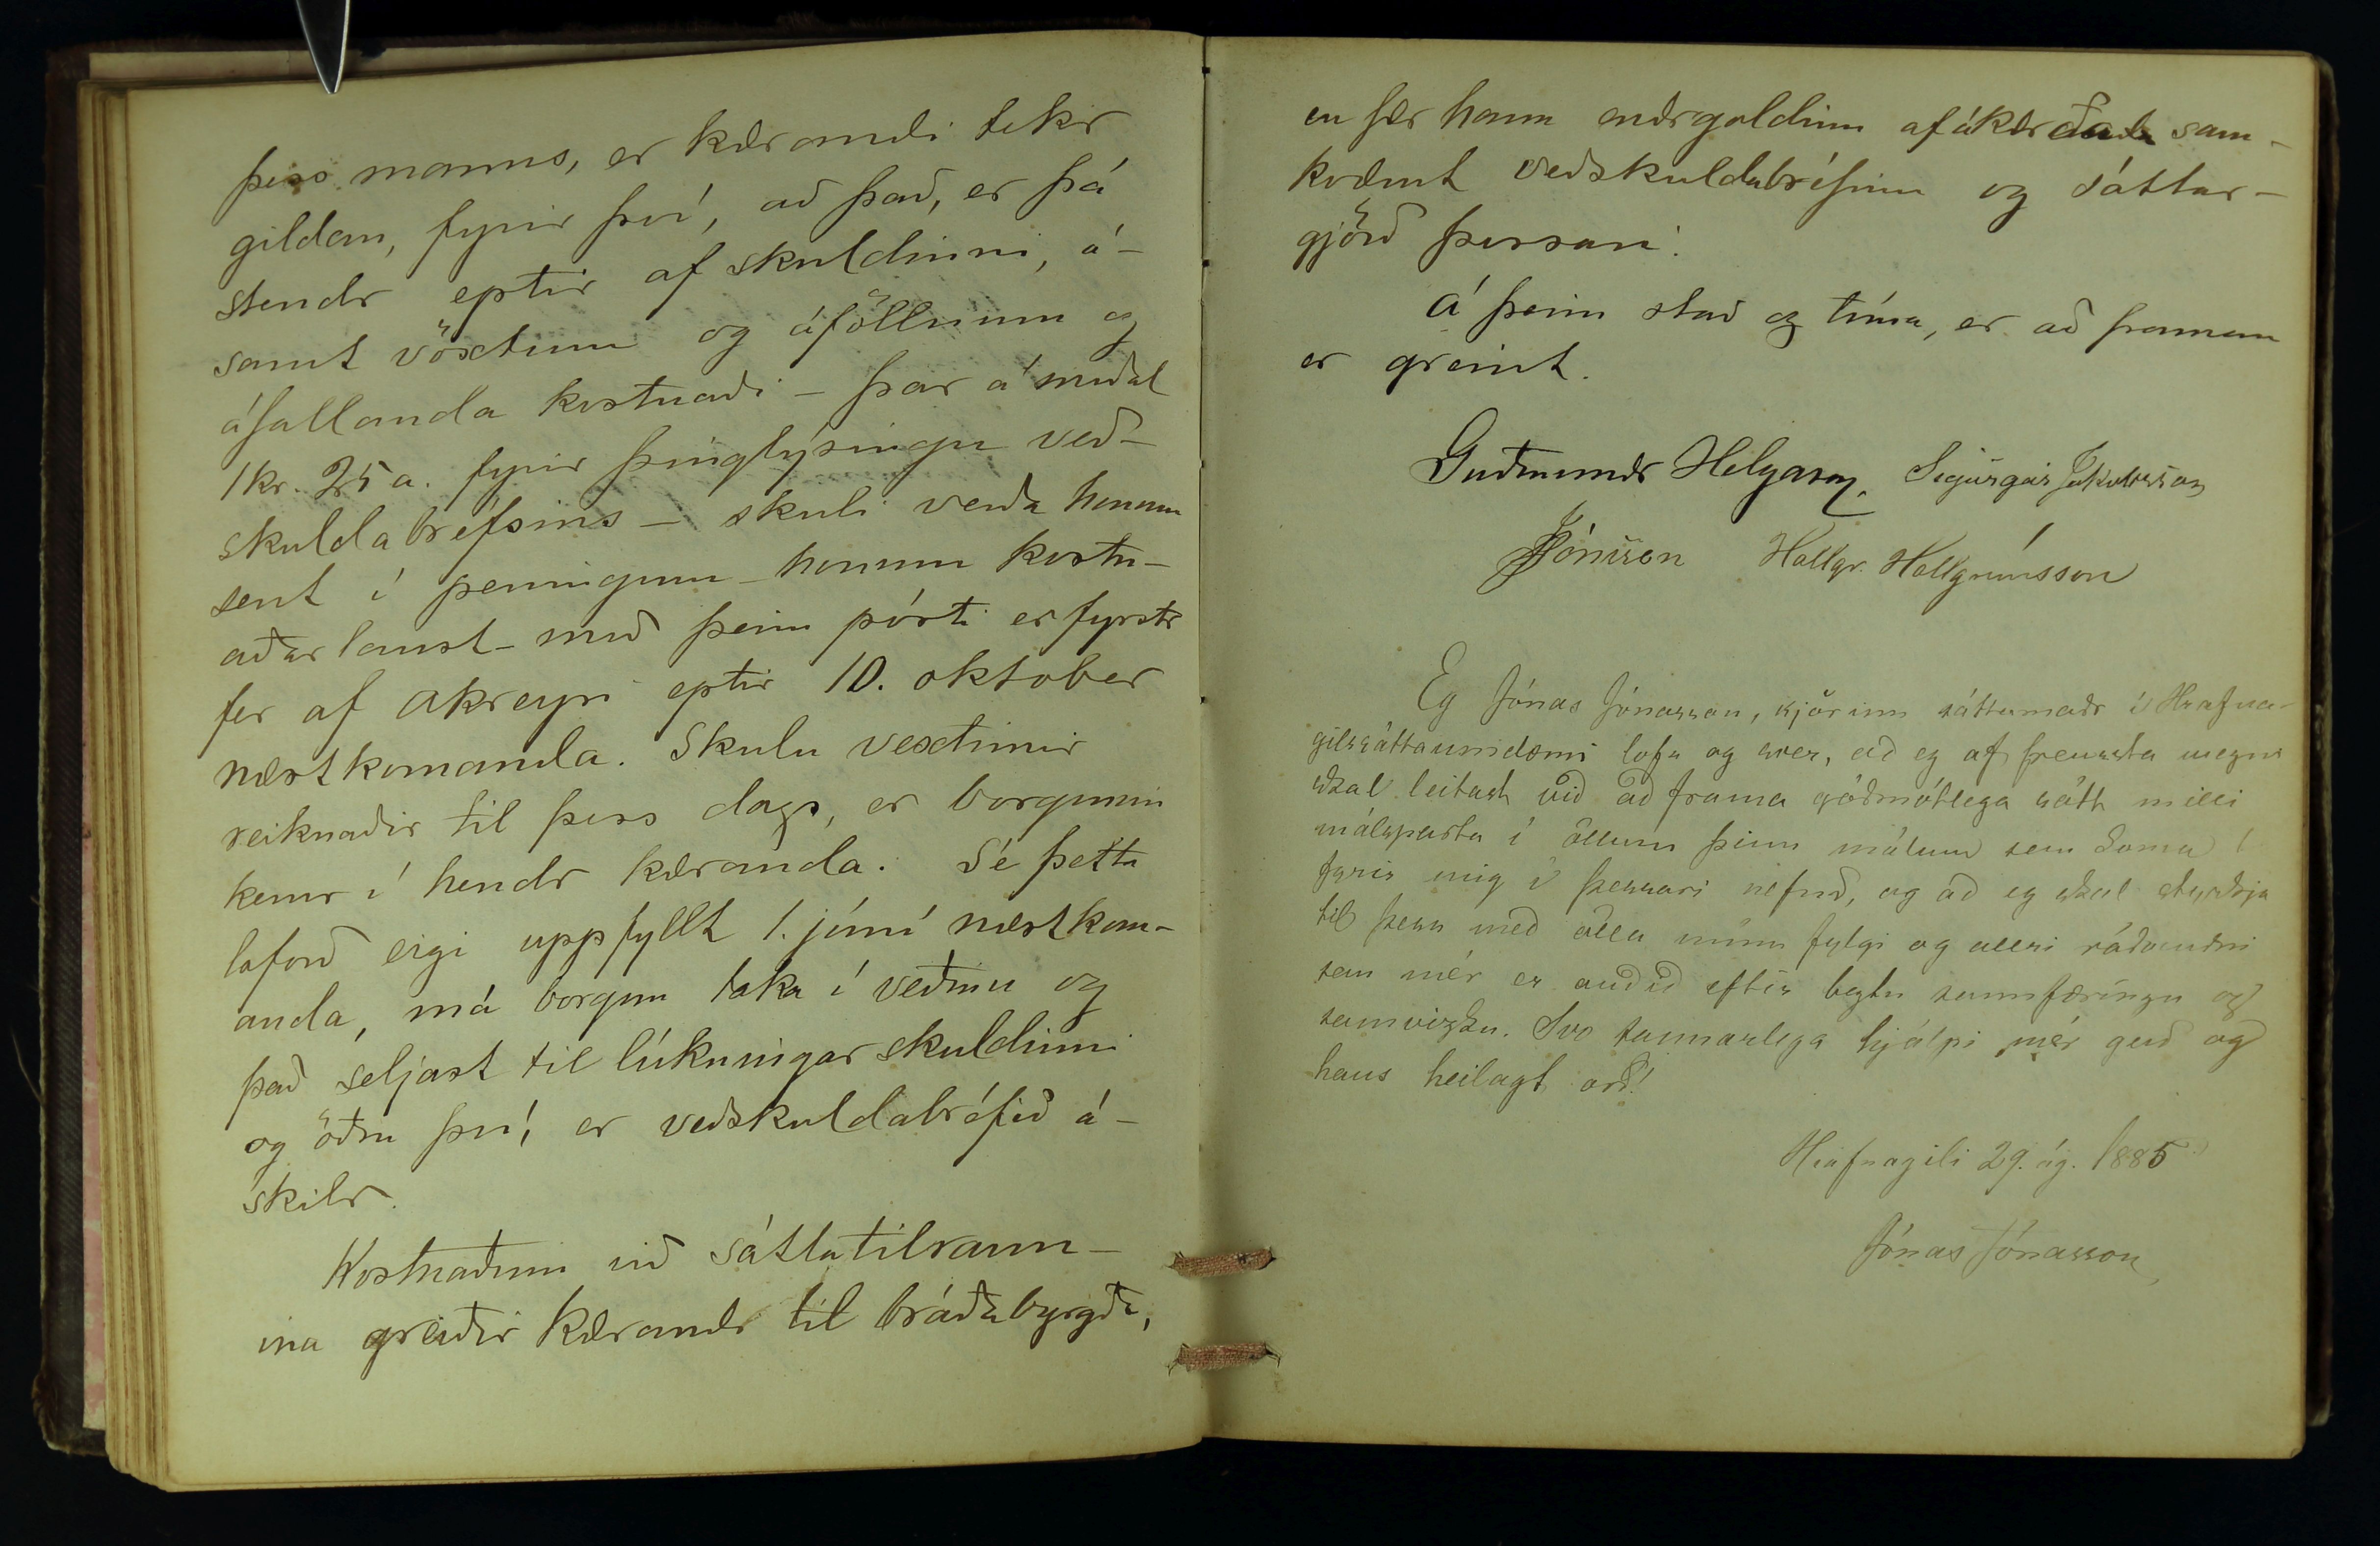 þess manns, er kærandi tekr
gildan, fyrir því, að það, er þá
stendr eptir af skuldinni, á-
samt vöxtum og áföllnum og
áfallanda kostnaði - þar á meðal
1 kr. 25 a. fyrir þinglýsingu veð-
skuldabréfsins - skuli verða honum
sent í peningum - honum kostn-
aðarlaust - með þeim pósti er fyrstr
fer af Akreyri eptir 10. oktober
næstkomanda. Skulu vextirnir
reiknaðir til þess dags, er borgunin
kemr í hendr kæranda. Sé þetta
loforð eigi uppfyllt 1. júní næstkom-
anda, má borgun taka í veðinu og
það seljast til lúkningar skuldinni
og öðru því, er veðskuldabréfið á-
skilr.
Kostnaðinn við sáttatilraun-
ina greiðir kærandi til bráðabyrgða,
en fær hann endrgoldinn af ákærða sam-
kvæmt veðskuldabréfinu og sáttar-
gjörð þessari.
Á þeim stað og tíma, er að framan
er greint.
Guðmundr Helgason. Sigurgeir Jakobsson
JJónsson Hallgr. Hallgrímsson
Eg Jónas Jónasson, kjörinn sáttamaðr í Hrafna-
gilssáttaumdæmi lofa og sver, að eg af fremsta megni
skal leitast við að frama góðmótlega sátt milli
málsparta í öllum þeim málum sem koma
fyrir mig í þessari nefnd, og að eg skal styrkja
til þess með öllu mínu fylgi og allri ráðvendni
sem mér er auðið eftir beztu sannfæringu og
samvizku. Svo sannarlega hjálpi mér guð og
hans heilagt orð!
Hrafnagili 29. ág. 1885
Jónas Jónasson